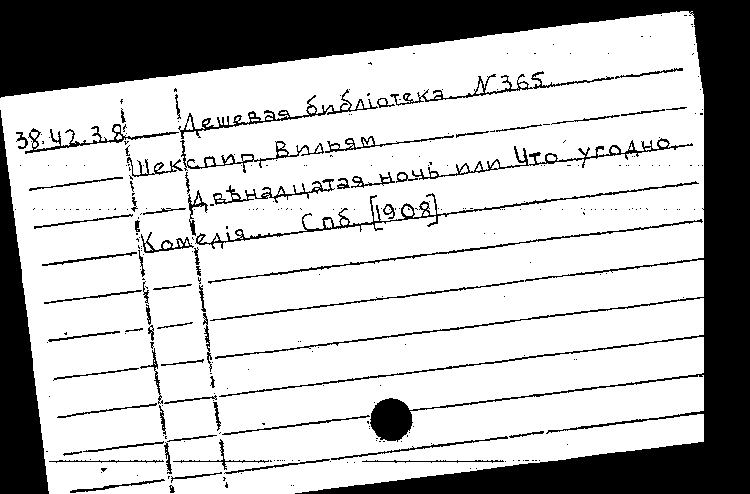 38.42.3.8 Дешевая библіотека N 365.
Шекспир, Вильям.
Двѣнадцатая ночь или Что угодно.
Комедія.... Спб., [1908].